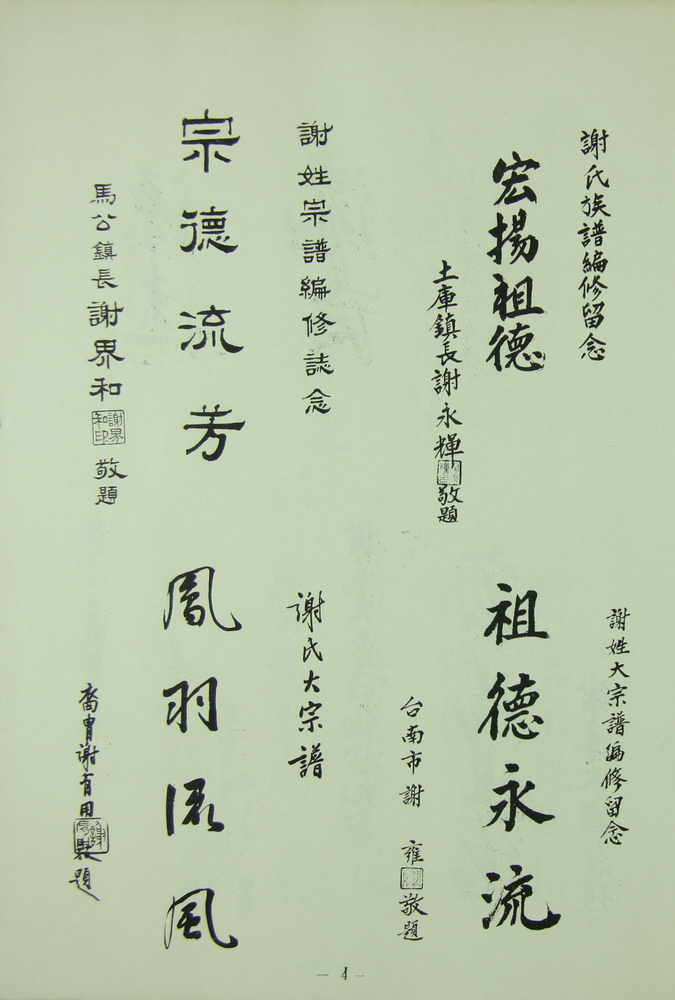 謝氏族譜編修留念
宏揚祖德
土庫鎮長謝永輝敬題
謝姓宗譜編修誌念
宗德流芳
馬公鎮長謝界和
謝界和印
敬題
謝姓大宗譜編修留念
祖德永流
台南市謝 雍
敬題
謝氏大宗譜
鳳羽流風
裔胄謝有用
題
— 4 —